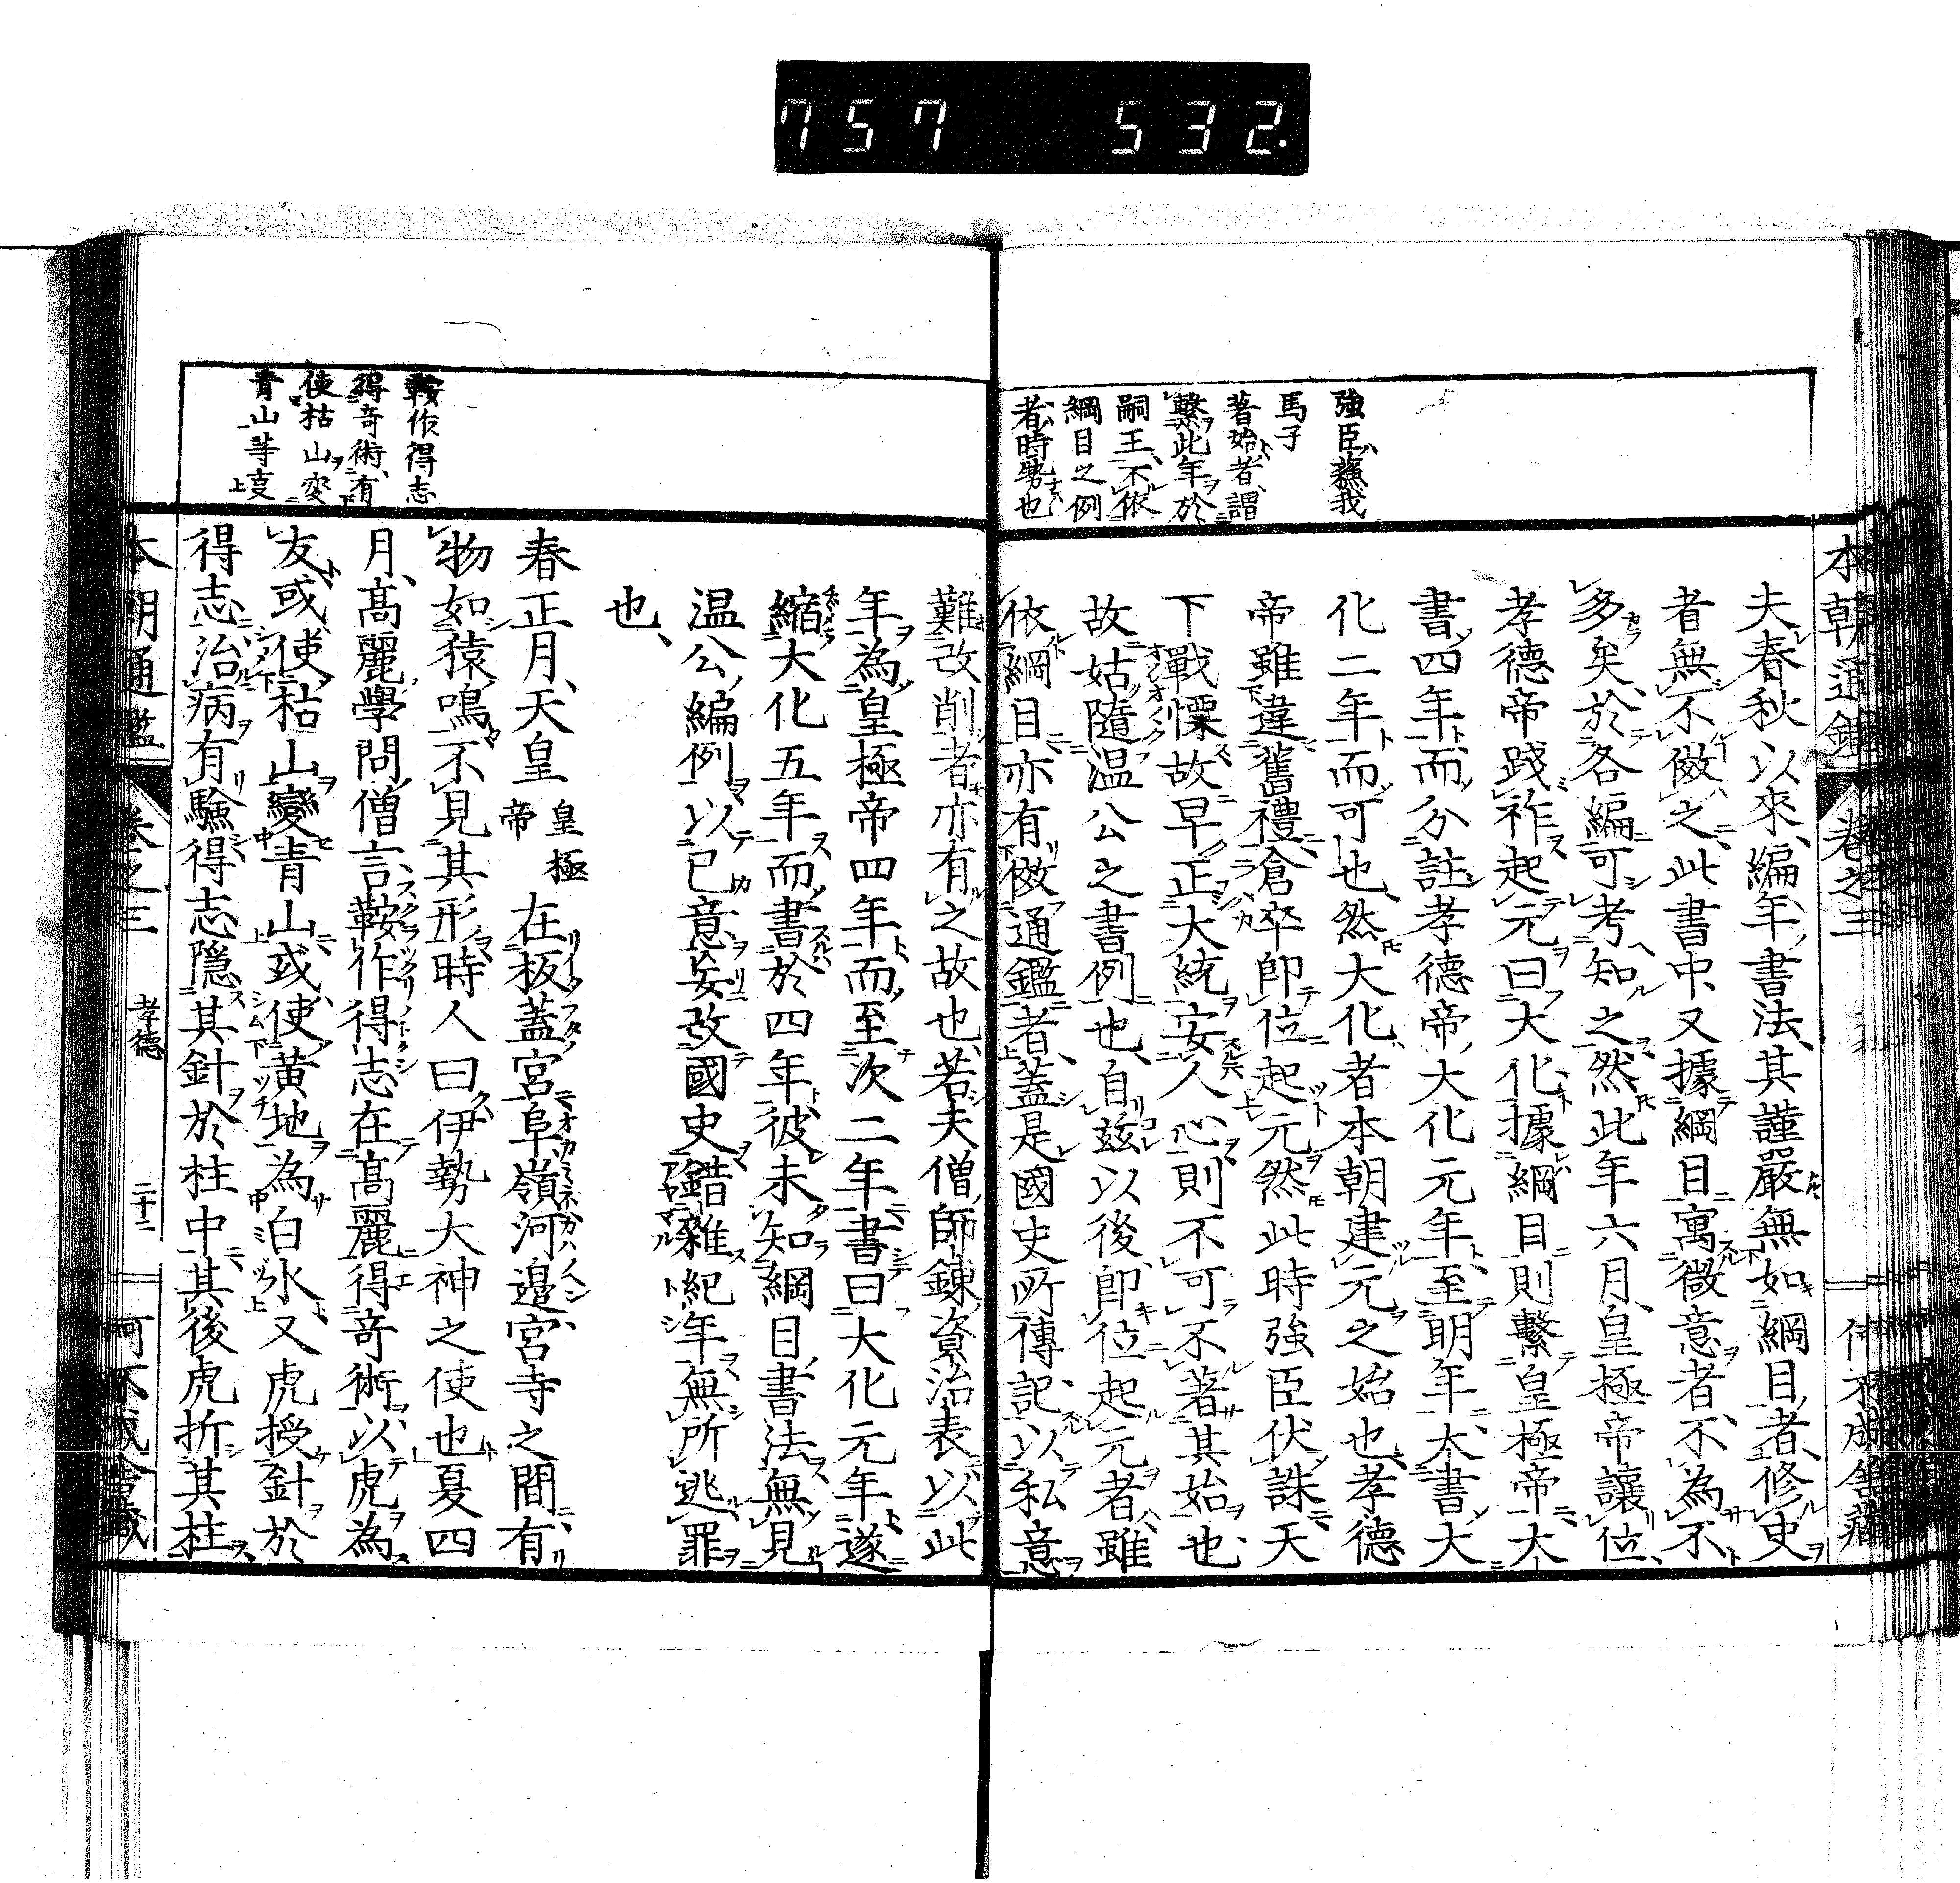 757 532.
本朝通鑑 卷之三
強臣蘇我
馬子
著始者、謂
繫此年於
嗣王、不依
綱目之例
者時勢也
夫春秋以來、編年書法、其謹嚴無如綱目者、修史
者無不倣之、此書中又據綱目寓微意者、不為不
多矣、於各編可考知之、然此年六月、皇極帝讓位、
孝德帝踐祚起元曰大化、據綱目則繫皇極帝大
書四年、而分註孝德帝大化元年、至明年大書大
化二年、而可也、然大化者本朝建元之始也、孝德
帝雖違舊禮、倉卒即位起元、然此時強臣伏誅、天
下戰慄、故早正大統安人心、則不可不著其始也、
故姑隨溫公之書例也、自茲以後、即位起元者、雖
依綱目、亦有倣通鑑者、蓋是國史所傳記、以私意
難改削者、亦有之故也、若夫僧師鍊資治表、以此
年為皇極帝四年、而至次二年、書曰大化元年、遂
縮大化五年、而書於四年、彼未知綱目書法、無見
温公編例、以已意妄改國史、錯雜紀年、無所逃罪
也、
鞍作得志
得奇術、有
使枯山変
青山等支
春正月、天皇皇極帝在板蓋宮、阜嶺河邉宮寺之間、有
物如猿鳴、不見其形、時人曰、伊勢大神之使也、夏四
月、髙麗學問僧言、鞍作得志在髙麗得奇術、以虎為
友、或使枯山變青山、或使黄地為白水、又虎授針於
得志、治病有驗、得志隠其針於柱中、其後虎折其柱
本朝通鑑 卷之三 孝德 二十二